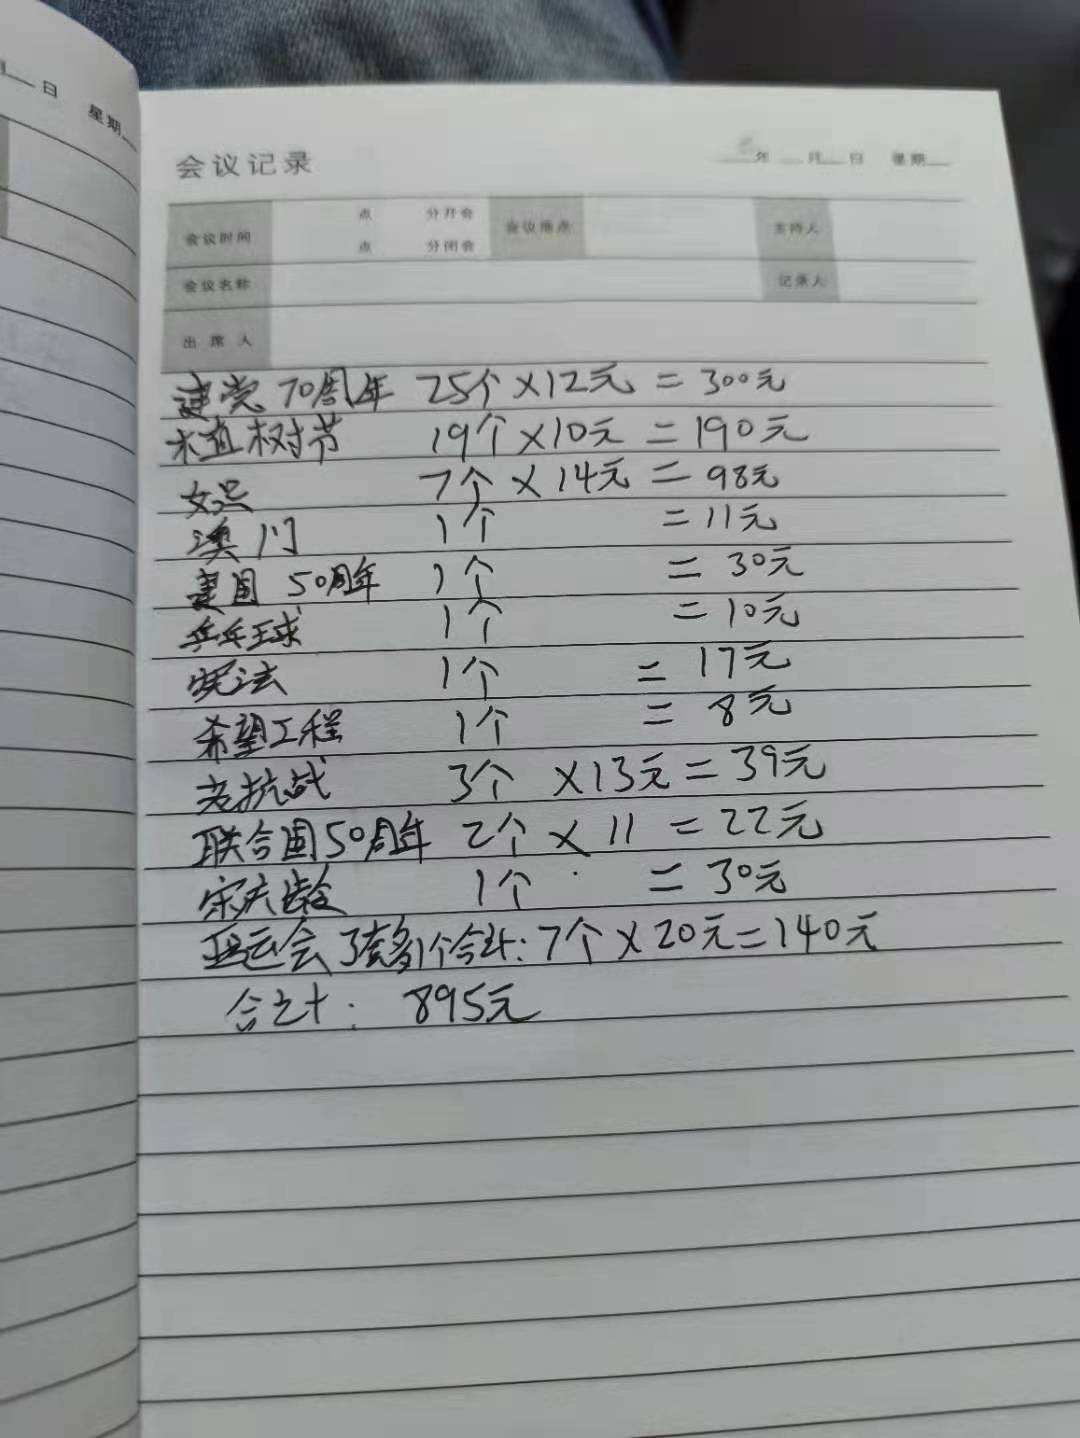 月 日 星期
会议记录
年 月 日 星期
会议时间 点 分开会 会议地点 主持人
点 分闭会
会议名称 记录人
出席人
建党70周年 25个×12元=300元
植树节 19个×10元=190元
女足 7个×14元=98元
澳门 1个 =11元
建国50周年 1个 =30元
乒乓球 1个 =10元
宪法 1个 =17元
希望工程 1个 =8元
老抗战 3个×13元=39元
联合国50周年 2个×11=22元
宋庆龄 1个 =30元
亚运会3套多1个合计:7个×20元=140元
合计: 895元